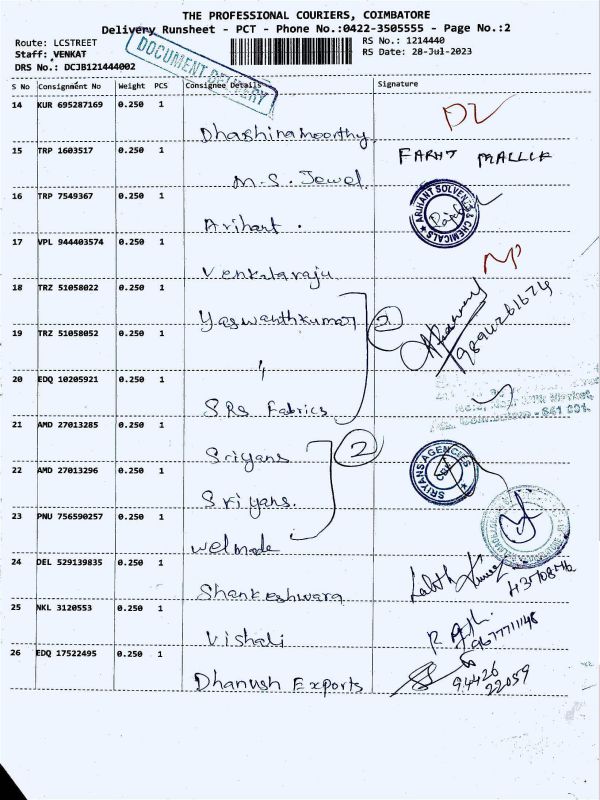 THE PROFESSIONAL COURIERS, COIMBATORE
Delivery Runsheet - PCT - Phone No.:0422-3505555 - Page No.:2
Route: LCSTREET
RS No.: 1214440
Staff: VENKAT
RS Date: 28-Jul-2023
DRS No.: DCJB121444002
DOCUMENT DELIVERY
S No Consignment No Weight PCS Consignee Details Signature
14 KUR 695287169 0.250 1
Dhashinamoorthy
15 TRP 1603517 0.250 1
M.S. Jewel
16 TRP 7549367 0.250 1
ARIHANT SOLVENTS & CHEMICALS
Arihant.
17 VPL 944403574 0.250 1
Venkataraju
18 TRZ 51058022 0.250 1
Yaswanthkumar 2
19 TRZ 51058052 0.250 1
"
20 EDQ 10205921 0.250 1
SRS Fabrics
21 AMD 27013285 0.250 1
Sriyans 2
SRIYANS AGENCIES CBE
22 AMD 27013296 0.250 1
Sriyans.
23 PNU 756590257 0.250 1
welmade
24 DEL 529139835 0.250 1
Shankeshwara
25 NKL 3120553 0.250 1
Vishali
26 EDQ 17522495 0.250 1
Dhanush Exports
94426
22059